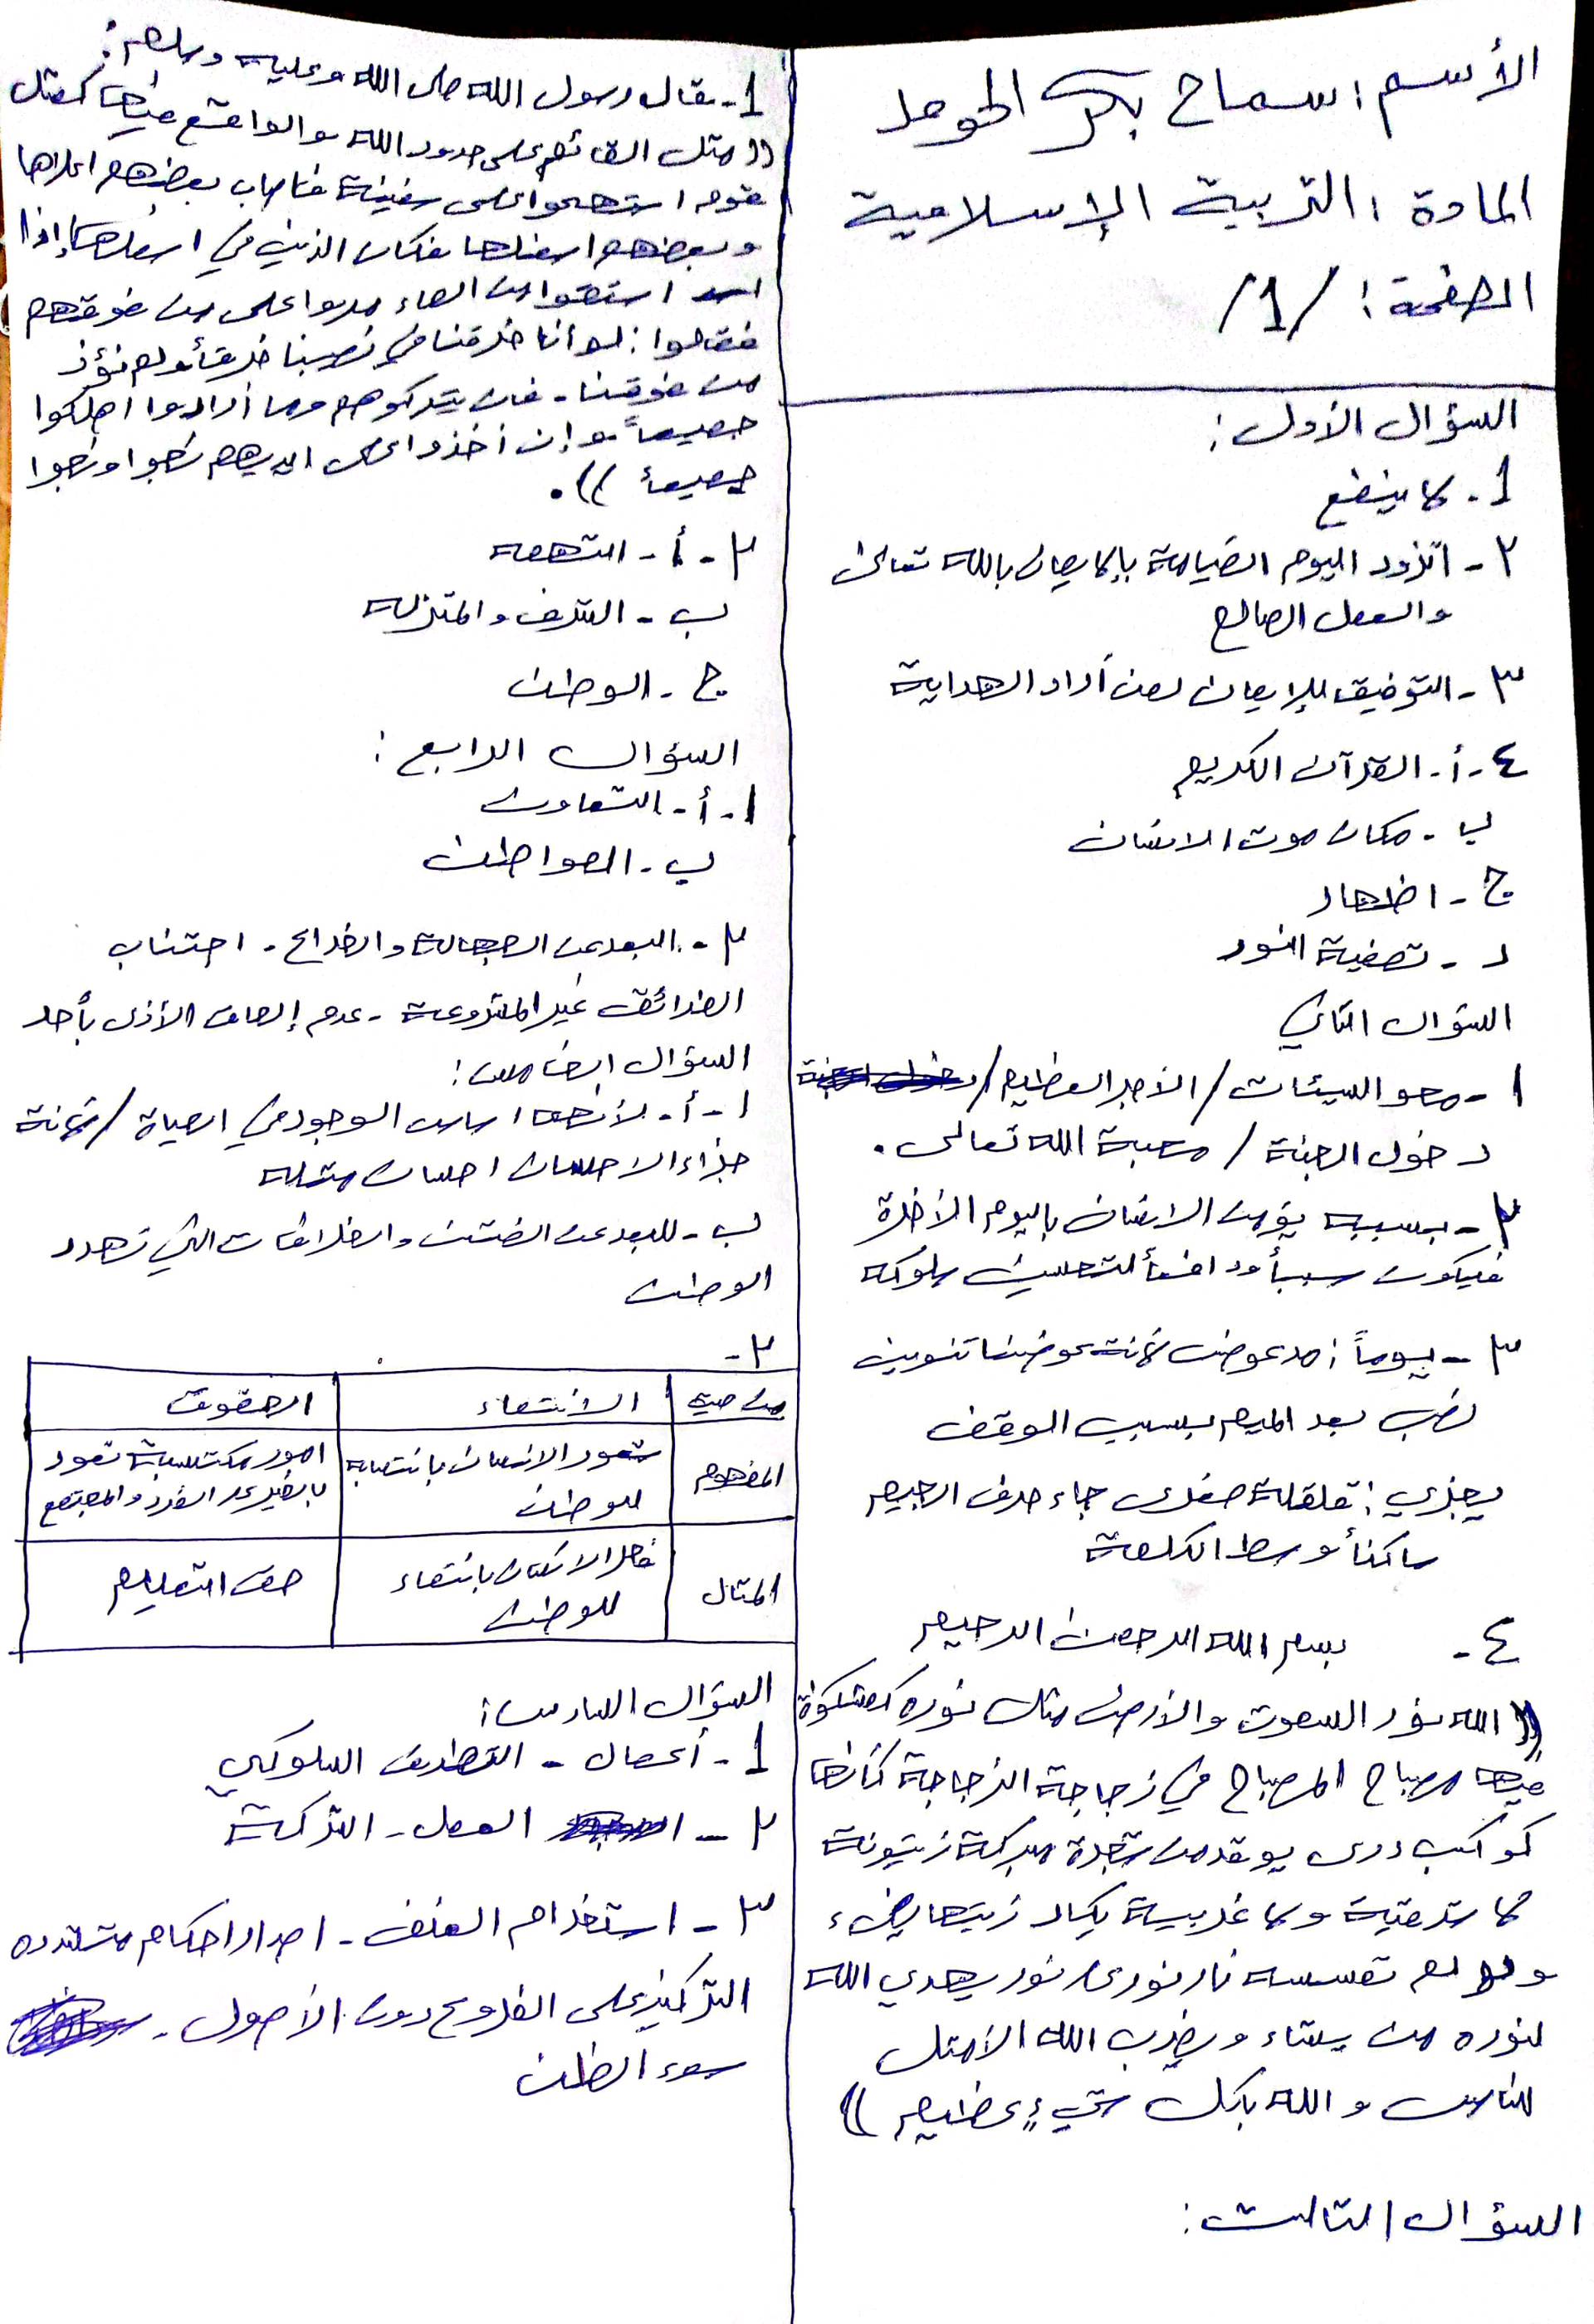 الأسم: سماح بكر الحومد
المادة: التربية الإسلامية
الصفحة: /1/
السؤال الأول:
1- لا ينفع
٢- أتزود اليوم القيامة بالإيمان بالله تعالى
والعمل الصالح
٣- التوفيق للإيمان لمن أراد الهداية
٤- أ- القرآن الكريم
ب- مكان موت الانسان
ج- اظهار
د- تصفية النور
السؤال الثاني
1- محو السيئات / الأجر العظيم /
دخول الجنة / محبة الله تعالى.
٢- بسببه يؤمن الانسان باليوم الأخرة
فيكون سبباً ودافعاً لتحسين سلوكه
٣- يوماً: مد عوض لأنة عوضنا تنوين
نصب بعد الميم بسبب الوقف
يجزي: قلقلة صغرى جاء حرف الجيم
ساكناً وسط الكلمة
٤- بسم الله الرحمن الرحيم
(( الله نور السموت والأرض مثل نوره كمشكوة
فيها مصباح المصباح في زجاجة الزجاجة كأنها
كوكب درى يوقد من شجرة مبركة زيتونة
لا شرقية ولا غربية يكاد زيتها يضيء
ولو لم تمسسه نار نور على نور يهدي الله
لنوره من يشاء ويضرب الله الأمثل
للناس والله بكل شيءٍ عظيم ))
السؤال الثالث:
1- قال رسول الله صلى الله وعليه وسلم:
(( مثل القائم على حدود الله والواقع فيها كمثل
قوم استهموا على سفينة فأصاب بعضهم اعلاها
وبعضهم اسفلها فكان الذين في اسفلها إذا
استقوا من الماء مروا على من فوقهم
فقالوا: لو أنا خرقنا في نصيبنا خرقاً ولم نؤذ
من فوقنا- فإن يتركوهم وما أرادوا اهلكوا
جميعاً وإن أخذوا على ايديهم نجوا ونجوا
جميعاً )).
٢- أ- التهمة
ب- الشرف والمنزلة
ج- الوطن
السؤال الرابع:
1- أ- التعاون
ب- المواطن
٢- البعد عن الجهالة والخداع- اجتناب
الطرائق غير المشروعة- عدم إلحاق الأذى بأحد
السؤال الخامس:
1- أ- لأنهما اساس الوجود في الحياة / لأنة
جزاء الاحسان احسان مثله
ب- للبعد عن الفتن والخلافات التي تهدد
الوطن
٢-
من حيث الانتماء الحقوق
المفهوم شعور الانسان بانتمائه امور مكتسبة تعود
للوطن بالخير على الفرد والمجتمع
المثال فخر الانسان بانتماء حق التعليم
للوطن
السؤال السادس:
1- أعمال - التطرف السلوكي
٢- العمل- التركة
٣- استخدام العنف- اصدار احكام متشدده
التركيز على الفروع دون الأصول-
سوء الظن